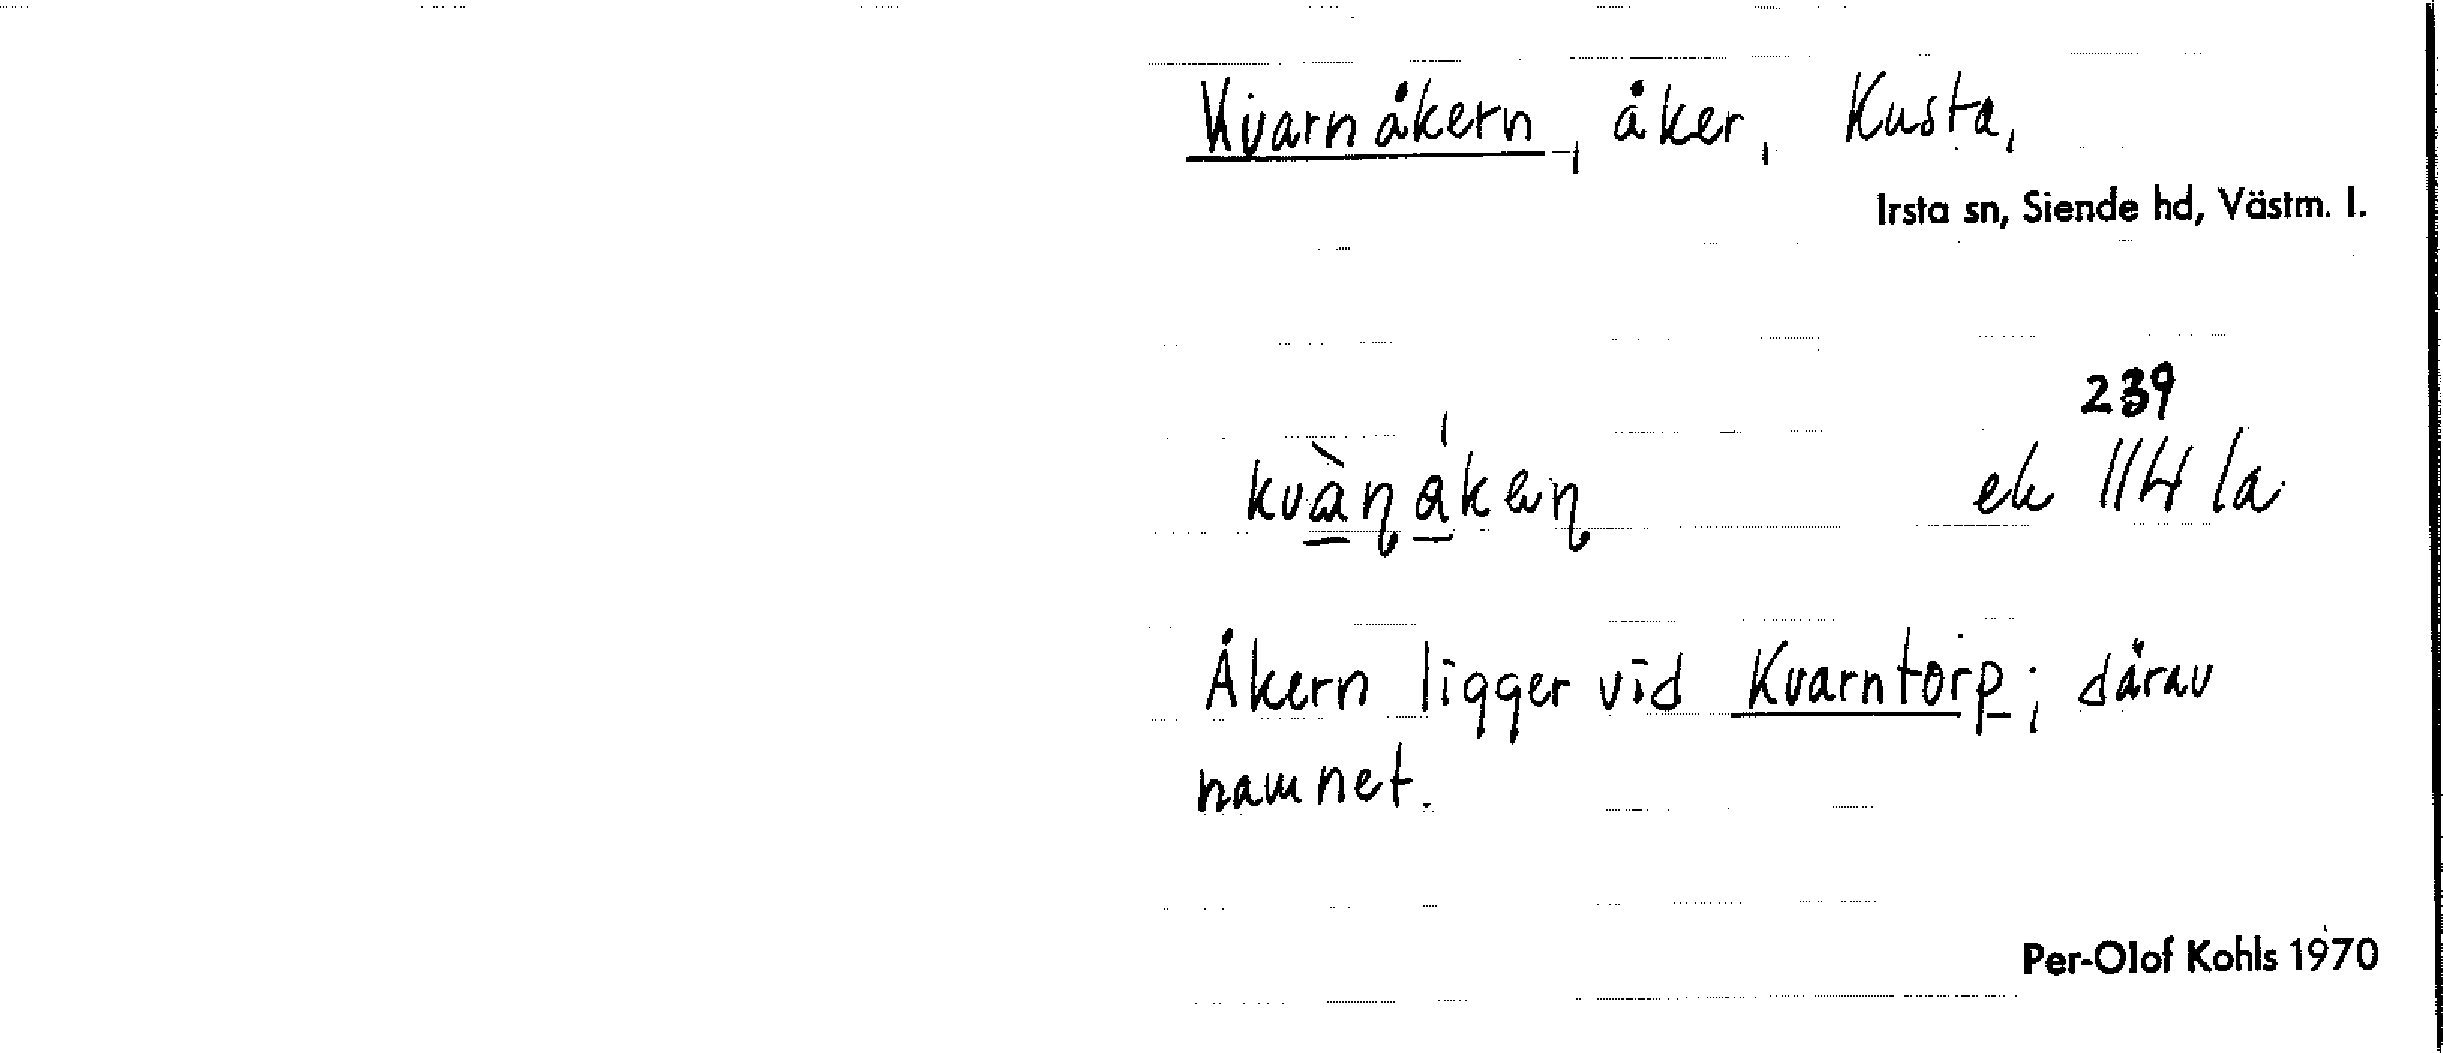 Kvarnåkern, åker, Kusta,
Irsta sn, Siende hd, Västm. l.
239
ek 114 la
Åkern ligger vid Kvarntorp; därav
namnet.
Per-Olof Kohls 1970